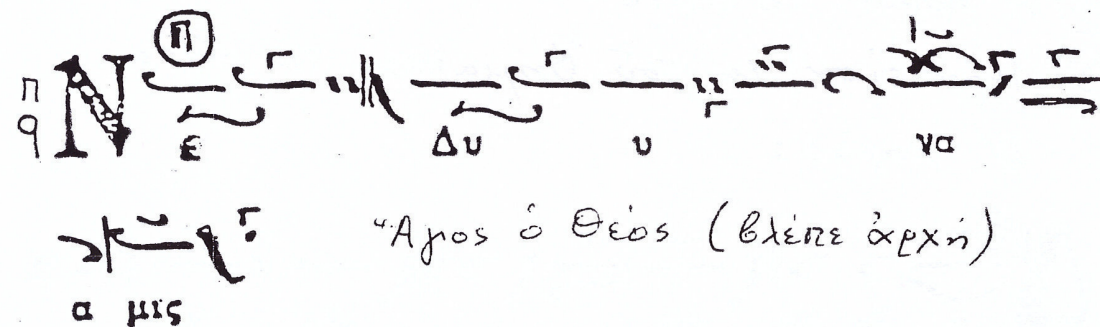 Π
π
q Ν
ε Δυ υ να
α μις Ἅγιος ὁ Θεός (βλέπε ἀρχή)